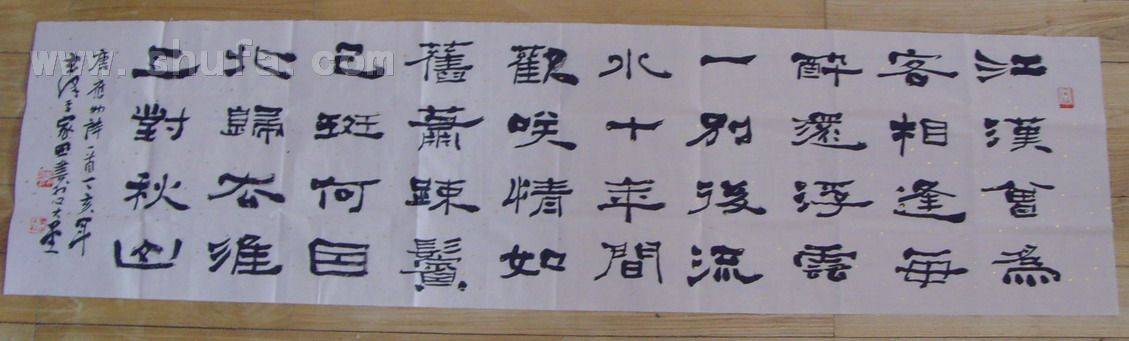 江漢曾爲
客相逢每
醉還浮雲
一別後流
水十年間
歡咲情如
舊蕭踈鬢
已斑何因
北歸去淮
上對秋山
唐應物詩一首丁亥年
www.shufa.com